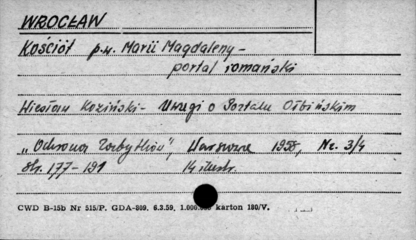 WROCŁAW
Kościół p.w. Marii Magdaleny -
portal romański
Wiesław Koziński - Uwagi o Portalu Ołbińskim
„Ochrona Zabytków", Warszawa 1955, Nr. 3/4
str. 177-191 14 ilustr.
CWD B-15b Nr 515/P. GDA-809. 6.3.59. karton 180/V.